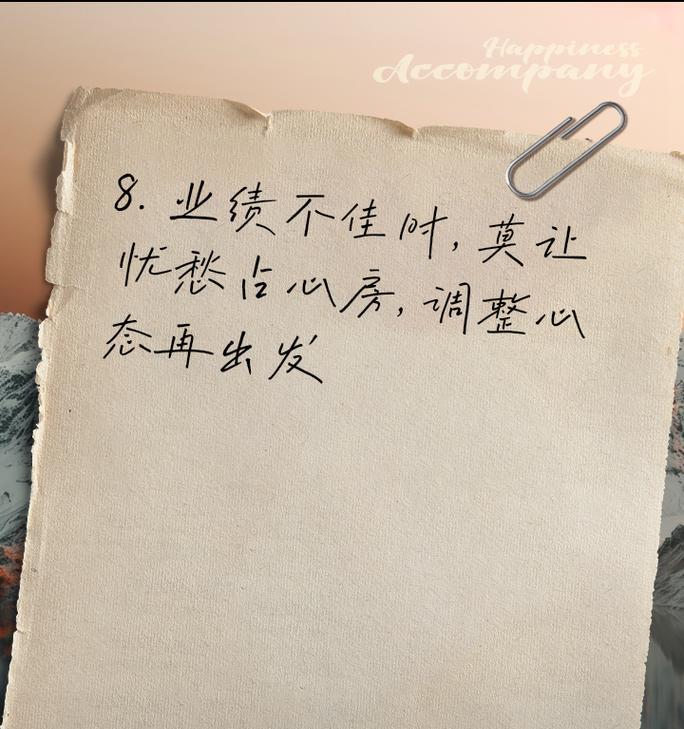 Happiness
Accompany
8. 业绩不佳时，莫让
忧愁占心房，调整心
态再出发